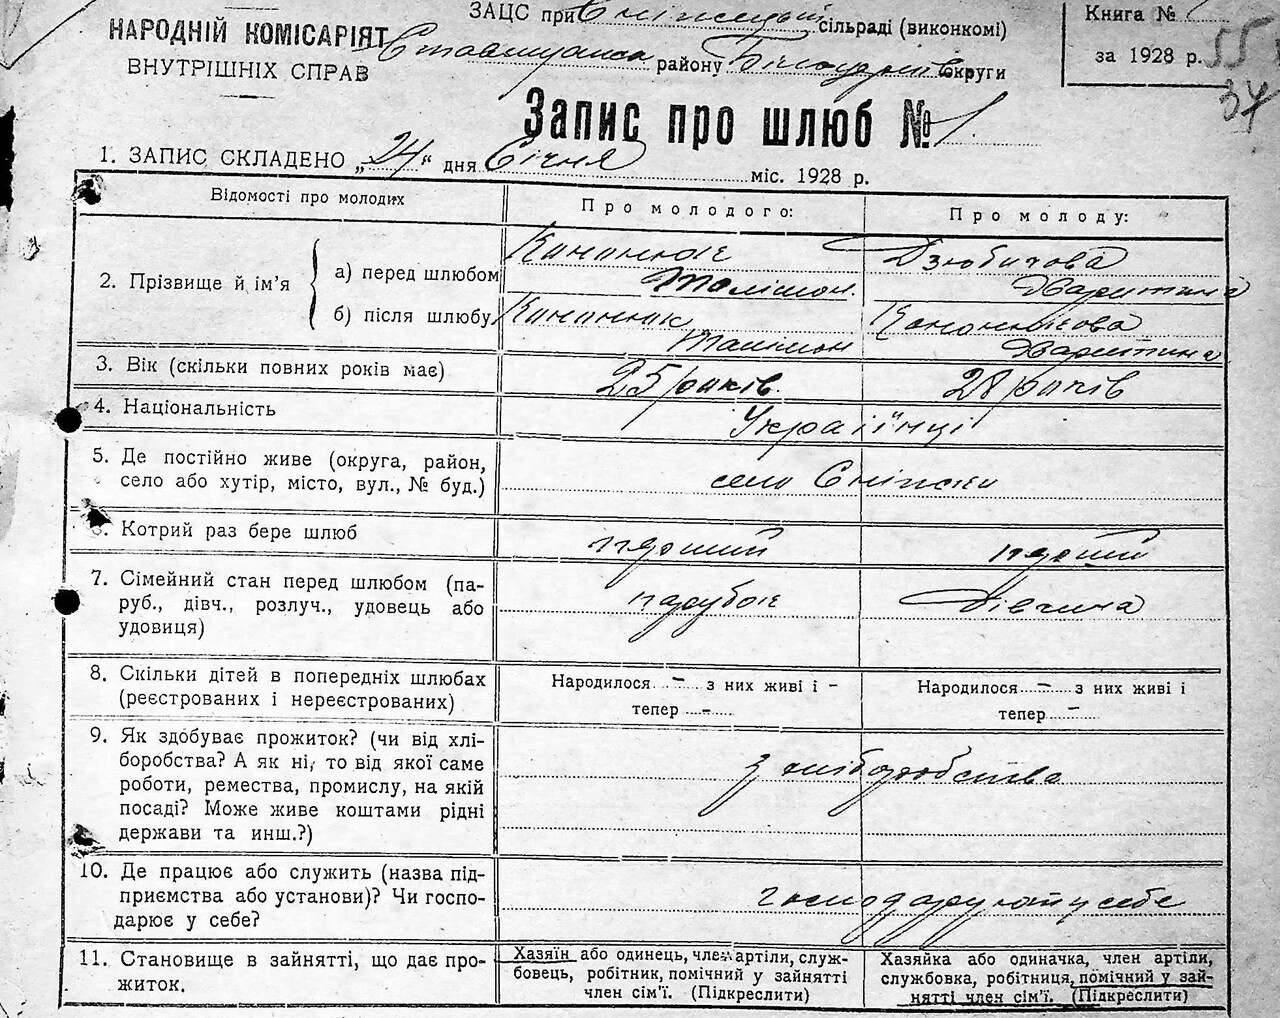 ЗАЦС при сільраді (виконкомі)
НАРОДНІЙ КОМІСАРІЯТ
ВНУТРІШНІХ СПРАВ
району округи
Книга №
за 1928 р.
55
34
Запис про шлюб № 1.
1. ЗАПИС СКЛАДЕНО „24“ дня Січня міс. 1928 р.
Відомості про молодих
Про молодого:
Про молоду:
2. Прізвище й ім'я
а) перед шлюбом
б) після шлюбу
3. Вік (скільки повних років має)
25 років.
28 років
4. Національність
Українці
5. Де постійно живе (округа, район,
село або хутір, місто, вул., № буд.)
село
6. Котрий раз бере шлюб
перший
перший
7. Сімейний стан перед шлюбом (па-
руб., дівч., розлуч., удовець або
удовиця)
парубок
дівчина
8. Скільки дітей в попередніх шлюбах
(реєстрованих і нереєстрованих)
Народилося - з них живі і -
тепер -
Народилося - з них живі і
тепер -
9. Як здобуває прожиток? (чи від хлі-
боробства? А як ні, то від якої саме
роботи, ремества, промислу, на якій
посаді? Може живе коштами рідні
держави та инш.?)
з хліборобства
10. Де працює або служить (назва під-
приємства або установи)? Чи госпо-
дарює у себе?
господарюють у себе
11. Становище в зайнятті, що дає про-
житок.
Хазяїн або одинець, член артіли, служ-
бовець, робітник, помічний у зайнятті
член сім'ї. (Підкреслити)
Хазяйка або одиначка, член артіли,
службовка, робітниця, помічний у зай-
нятті член сім'ї. (Підкреслити)